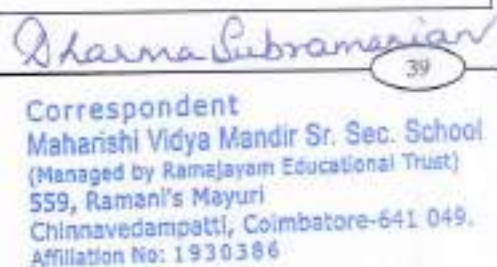 Dharma Subramanian
39
Correspondent
Maharishi Vidya Mandir Sr. Sec. School
(Managed by Ramajayam Educational Trust)
559, Ramani's Mayuri
Chinnavedampatti, Coimbatore-641 049.
Affiliation No: 1930386